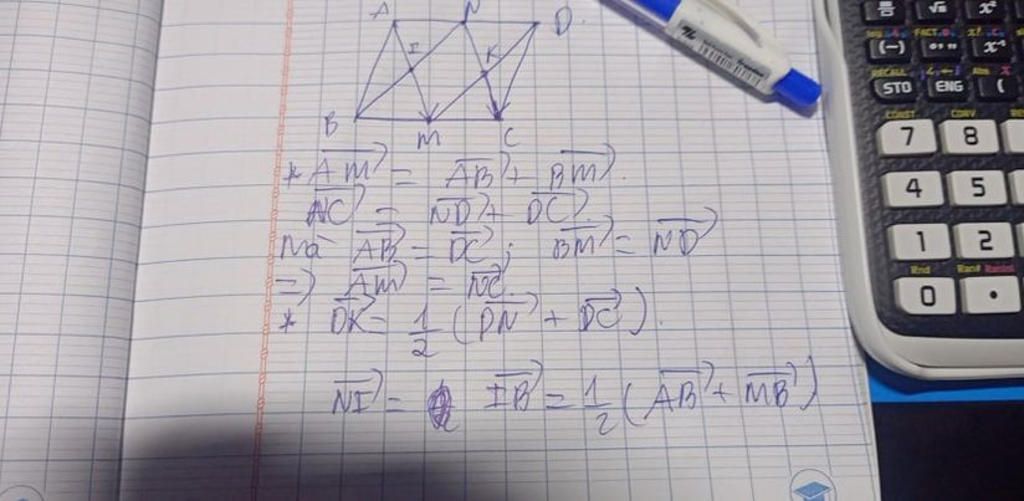 A N D
I K
B M C
* $\overrightarrow{AM} = \overrightarrow{AB} + \overrightarrow{BM}$.
$\overrightarrow{NC} = \overrightarrow{ND} + \overrightarrow{DC}$.
Mà $\overrightarrow{AB} = \overrightarrow{DC}$; $\overrightarrow{BM} = \overrightarrow{ND}$
=> $\overrightarrow{AM} = \overrightarrow{NC}$
* $\overrightarrow{DK} = \frac{1}{2}(\overrightarrow{DN} + \overrightarrow{DC})$.
$\overrightarrow{NI} = \overrightarrow{IB} = \frac{1}{2}(\overrightarrow{AB} + \overrightarrow{MB})$
(−) °'" x⁻¹
RECALL
STO ENG (
CONST CONV
7 8
4 5
1 2
Rnd Ran#
0 •